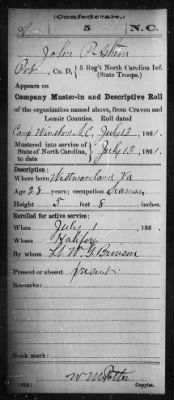 (Confederate.)
5 N.C.
John P.
Pvt, Co. D, 5 Reg't North Carolina Inf.
(State Troops.)
Appears on
Company Muster-in and Descriptive Roll
of the organization named above, from Craven and
Lenoir Counties. Roll dated
Camp Winslow N.C., July 12, 1861.
Mustered into service of
State of North Carolina, July 12, 1861.
to date
Description:
Where born Westmoreland Va
Age 28 years; occupation Seaman
Height 5 feet 8 inches.
Enrolled for active service:
When July 1, 186
Where Halifax
By whom Lt W. G.
Present or absent present
Remarks:
Book mark:
Copyist.